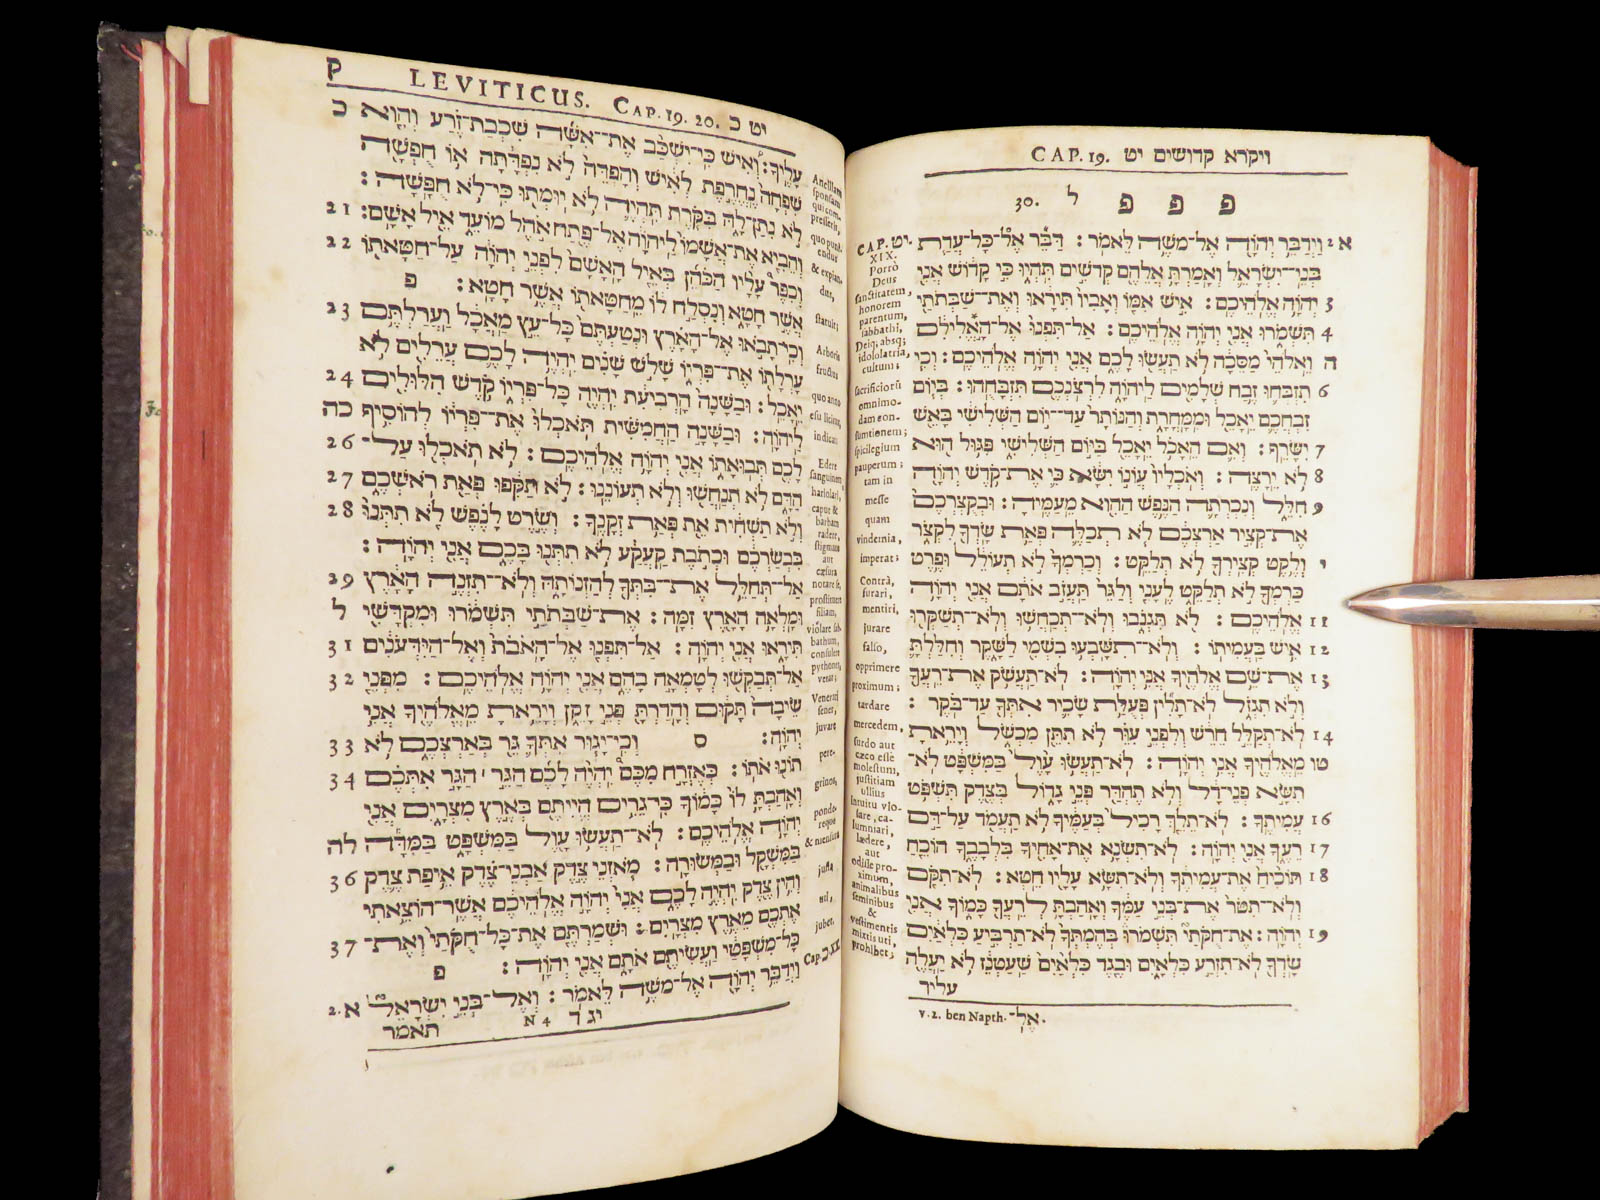 ויקרא קדושים יט CAP. 19.
פ פ פ ל 30.
א 2 וַיְדַבֵּר יְהוָה אֶל־מֹשֶׁה לֵּאמֹר׃ דַּבֵּר אֶל־כָּל־עֲדַת
בְּנֵי־יִשְׂרָאֵל וְאָמַרְתָּ אֲלֵהֶם קְדֹשִׁים תִּהְיוּ כִּי קָדוֹשׁ אֲנִי
3 יְהוָה אֱלֹהֵיכֶם׃ אִישׁ אִמּוֹ וְאָבִיו תִּירָאוּ וְאֶת־שַׁבְּתֹתַי
4 תִּשְׁמֹרוּ אֲנִי יְהוָה אֱלֹהֵיכֶם׃ אַל־תִּפְנוּ אֶל־הָאֱלִילִם
ה וֵאלֹהֵי מַסֵּכָה לֹא תַעֲשׂוּ לָכֶם אֲנִי יְהוָה אֱלֹהֵיכֶם׃ וְכִי
6 תִזְבְּחוּ זֶבַח שְׁלָמִים לַיהוָה לִרְצֹנְכֶם תִּזְבָּחֻהוּ׃ בְּיוֹם
זִבְחֲכֶם יֵאָכֵל וּמִמָּחֳרָת וְהַנּוֹתָר עַד־יוֹם הַשְּׁלִישִׁי בָּאֵשׁ
7 יִשָּׂרֵף׃ וְאִם הֵאָכֹל יֵאָכֵל בַּיּוֹם הַשְּׁלִישִׁי פִּגּוּל הוּא
8 לֹא יֵרָצֶה׃ וְאֹכְלָיו עֲוֹנוֹ יִשָּׂא כִּי אֶת־קֹדֶשׁ יְהוָה
9 חִלֵּל וְנִכְרְתָה הַנֶּפֶשׁ הַהִוא מֵעַמֶּיהָ׃ וּבְקֻצְרְכֶם
אֶת־קְצִיר אַרְצְכֶם לֹא תְכַלֶּה פְּאַת שָׂדְךָ לִקְצֹר
י וְלֶקֶט קְצִירְךָ לֹא תְלַקֵּט׃ וְכַרְמְךָ לֹא תְעוֹלֵל וּפֶרֶט
כַּרְמְךָ לֹא תְלַקֵּט לֶעָנִי וְלַגֵּר תַּעֲזֹב אֹתָם אֲנִי יְהוָה
11 אֱלֹהֵיכֶם׃ לֹא תִּגְנֹבוּ וְלֹא־תְכַחֲשׁוּ וְלֹא־תְשַׁקְּרוּ
12 אִישׁ בַּעֲמִיתוֹ׃ וְלֹא־תִשָּׁבְעוּ בִשְׁמִי לַשָּׁקֶר וְחִלַּלְתָּ
13 אֶת־שֵׁם אֱלֹהֶיךָ אֲנִי יְהוָה׃ לֹא־תַעֲשֹׁק אֶת־רֵעֲךָ
וְלֹא תִגְזֹל לֹא־תָלִין פְּעֻלַּת שָׂכִיר אִתְּךָ עַד־בֹּקֶר׃
14 לֹא־תְקַלֵּל חֵרֵשׁ וְלִפְנֵי עִוֵּר לֹא תִתֵּן מִכְשֹׁל וְיָרֵאתָ
טו מֵּאֱלֹהֶיךָ אֲנִי יְהוָה׃ לֹא־תַעֲשׂוּ עָוֶל בַּמִּשְׁפָּט לֹא־
תִשָּׂא פְנֵי־דָל וְלֹא תֶהְדַּר פְּנֵי גָדוֹל בְּצֶדֶק תִּשְׁפֹּט
16 עֲמִיתֶךָ׃ לֹא־תֵלֵךְ רָכִיל בְּעַמֶּיךָ לֹא תַעֲמֹד עַל־דַּם
17 רֵעֶךָ אֲנִי יְהוָה׃ לֹא־תִשְׂנָא אֶת־אָחִיךָ בִּלְבָבֶךָ הוֹכֵחַ
18 תּוֹכִיחַ אֶת־עֲמִיתֶךָ וְלֹא־תִשָּׂא עָלָיו חֵטְא׃ לֹא־תִקֹּם
וְלֹא־תִטֹּר אֶת־בְּנֵי עַמֶּךָ וְאָהַבְתָּ לְרֵעֲךָ כָּמוֹךָ אֲנִי
19 יְהוָה׃ אֶת־חֻקֹּתַי תִּשְׁמֹרוּ בְּהֶמְתְּךָ לֹא־תַרְבִּיעַ כִּלְאַיִם
שָׂדְךָ לֹא־תִזְרַע כִּלְאָיִם וּבֶגֶד כִּלְאַיִם שַׁעַטְנֵז לֹא יַעֲלֶה
עליך
v. 2. ben Napth. אֶל־.
CAP. יט.
XIX.
Porrò
Deus
sanctitatem,
honorem
parentum,
sabbathi,
Dei; absq;
idololatria,
cultum;
sacrificiorũ
omnimo-
dam con-
sumtionem;
spicilegium
pauperum;
tam in
messe
quam
vindemia,
imperat;
Contrà,
furari,
mentiri,
jurare
falso,
opprimere
proximum;
tardare
mercedem,
surdo aut
cæco esse
molestum,
justitiam
ullius
intuitu vio-
lare, ca-
lumniari,
lædere,
aut
odisse pro-
ximum,
animalibus
seminibus
&
vestimentis
mixtis uti,
prohibet;
ק LEVITICUS. CAP. 19. 20. יט כ
כ עָלֶיךָ׃ וְאִישׁ כִּי־יִשְׁכַּב אֶת־אִשָּׁה שִׁכְבַת־זֶרַע וְהִוא
שִׁפְחָה נֶחֱרֶפֶת לְאִישׁ וְהָפְדֵּה לֹא נִפְדָּתָה אוֹ חֻפְשָׁה
לֹא נִתַּן־לָהּ בִּקֹּרֶת תִּהְיֶה לֹא יוּמְתוּ כִּי־לֹא חֻפָּשָׁה׃
21 וְהֵבִיא אֶת־אֲשָׁמוֹ לַיהוָה אֶל־פֶּתַח אֹהֶל מוֹעֵד אֵיל אָשָׁם׃
22 וְכִפֶּר עָלָיו הַכֹּהֵן בְּאֵיל הָאָשָׁם לִפְנֵי יְהוָה עַל־חַטָּאתוֹ
אֲשֶׁר חָטָא וְנִסְלַח לוֹ מֵחַטָּאתוֹ אֲשֶׁר חָטָא׃ פ
23 וְכִי־תָבֹאוּ אֶל־הָאָרֶץ וּנְטַעְתֶּם כָּל־עֵץ מַאֲכָל וַעֲרַלְתֶּם
עָרְלָתוֹ אֶת־פִּרְיוֹ שָׁלֹשׁ שָׁנִים יִהְיֶה לָכֶם עֲרֵלִים לֹא
24 יֵאָכֵל׃ וּבַשָּׁנָה הָרְבִיעִת יִהְיֶה כָּל־פִּרְיוֹ קֹדֶשׁ הִלּוּלִים
כה לַיהוָה׃ וּבַשָּׁנָה הַחֲמִישִׁת תֹּאכְלוּ אֶת־פִּרְיוֹ לְהוֹסִיף
26 לָכֶם תְּבוּאָתוֹ אֲנִי יְהוָה אֱלֹהֵיכֶם׃ לֹא תֹאכְלוּ עַל־
27 הַדָּם לֹא תְנַחֲשׁוּ וְלֹא תְעוֹנֵנוּ׃ לֹא תַקִּפוּ פְּאַת רֹאשְׁכֶם
28 וְלֹא תַשְׁחִית אֵת פְּאַת זְקָנֶךָ׃ וְשֶׂרֶט לָנֶפֶשׁ לֹא תִתְּנוּ
בִּבְשַׂרְכֶם וּכְתֹבֶת קַעֲקַע לֹא תִתְּנוּ בָּכֶם אֲנִי יְהוָה׃
29 אַל־תְּחַלֵּל אֶת־בִּתְּךָ לְהַזְנוֹתָהּ וְלֹא־תִזְנֶה הָאָרֶץ
ל וּמָלְאָה הָאָרֶץ זִמָּה׃ אֶת־שַׁבְּתֹתַי תִּשְׁמֹרוּ וּמִקְדָּשִׁי
31 תִּירָאוּ אֲנִי יְהוָה׃ אַל־תִּפְנוּ אֶל־הָאֹבֹת וְאֶל־הַיִּדְּעֹנִים
32 אַל־תְּבַקְשׁוּ לְטָמְאָה בָהֶם אֲנִי יְהוָה אֱלֹהֵיכֶם׃ מִפְּנֵי
שֵׂיבָה תָּקוּם וְהָדַרְתָּ פְּנֵי זָקֵן וְיָרֵאתָ מֵּאֱלֹהֶיךָ אֲנִי
33 יְהוָה׃ ס וְכִי־יָגוּר אִתְּךָ גֵּר בְּאַרְצְכֶם לֹא
34 תוֹנוּ אֹתוֹ׃ כְּאֶזְרָח מִכֶּם יִהְיֶה לָכֶם הַגֵּר ׀ הַגָּר אִתְּכֶם
וְאָהַבְתָּ לוֹ כָּמוֹךָ כִּי־גֵרִים הֱיִיתֶם בְּאֶרֶץ מִצְרָיִם אֲנִי
לה יְהוָה אֱלֹהֵיכֶם׃ לֹא־תַעֲשׂוּ עָוֶל בַּמִּשְׁפָּט בַּמִּדָּה
36 בַּמִּשְׁקָל וּבַמְּשׂוּרָה׃ מֹאזְנֵי צֶדֶק אַבְנֵי־צֶדֶק אֵיפַת צֶדֶק
וְהִין צֶדֶק יִהְיֶה לָכֶם אֲנִי יְהוָה אֱלֹהֵיכֶם אֲשֶׁר־הוֹצֵאתִי
37 אֶתְכֶם מֵאֶרֶץ מִצְרָיִם׃ וּשְׁמַרְתֶּם אֶת־כָּל־חֻקֹּתַי וְאֶת־
כָּל־מִשְׁפָּטַי וַעֲשִׂיתֶם אֹתָם אֲנִי יְהוָה׃ פ
2. א וַיְדַבֵּר יְהוָה אֶל־מֹשֶׁה לֵּאמֹר׃ וְאֶל־בְּנֵי יִשְׂרָאֵל
יג ד N 4 תאמר
Ancillam
sponsam
qui com-
presserit,
quo puni-
endus
& expian-
dus,
statuit;
Arboris
fructus
quo anno
esu licitus,
indicat;
Edere
sanguinem
hariolari,
caput &
barbam
radere,
stigmata
aut
cæsura
notare se,
prostituere
filiam,
violare sab-
bathum,
consulere
pythones,
vetat;
Venerari
senes,
juvare
pere-
grinos,
ponde-
reque
& mensura
justa
uti,
jubet.
Cap. כ. XX.